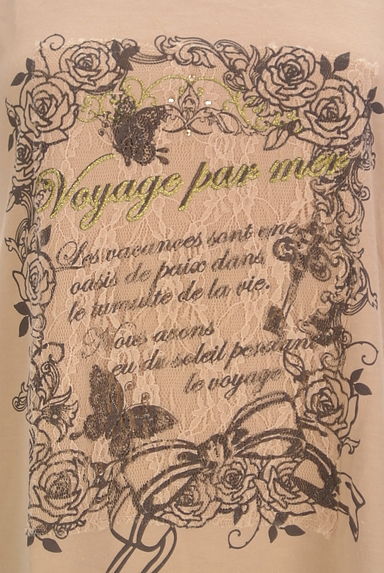 Voyage par mer
Les vacances sont une
oasis de paix dans
le tumulte de la vie.
Nous avons
eu du soleil pendant
le voyage